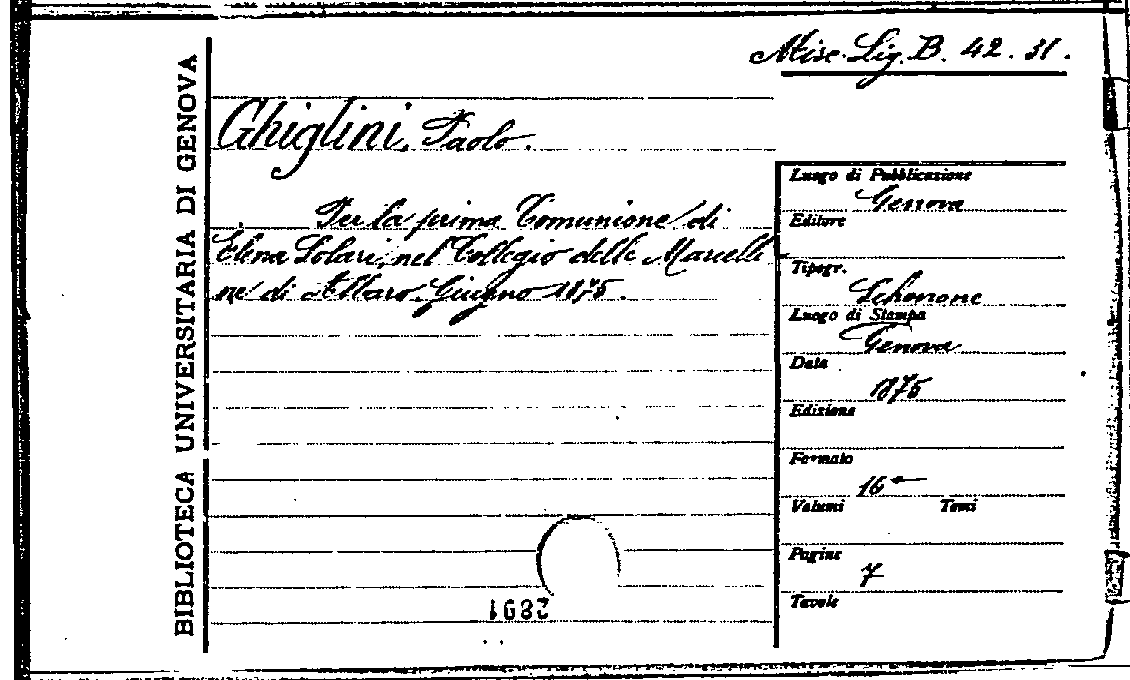 Misc. Lig. B. 42. 31.
BIBLIOTECA UNIVERSITARIA DI GENOVA
Ghiglini, Paolo.
Per la prima Comunione di
Elena Solari, nel Collegio delle Marcelli
ne di Albaro. Giugno 1875.
Luogo di Pubblicazione
Genova
Editore
Tipogr.
Schenone
Luogo di Stampa
Genova
Data
1875
Edizione
Formato
16°
Volumi Tomi
Pagine
7
Tavole
2891